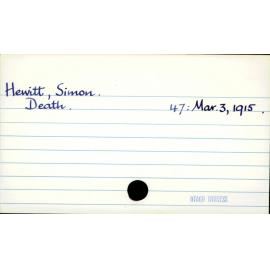 Hewitt, Simon.
Death. 47: Mar. 3, 1915.